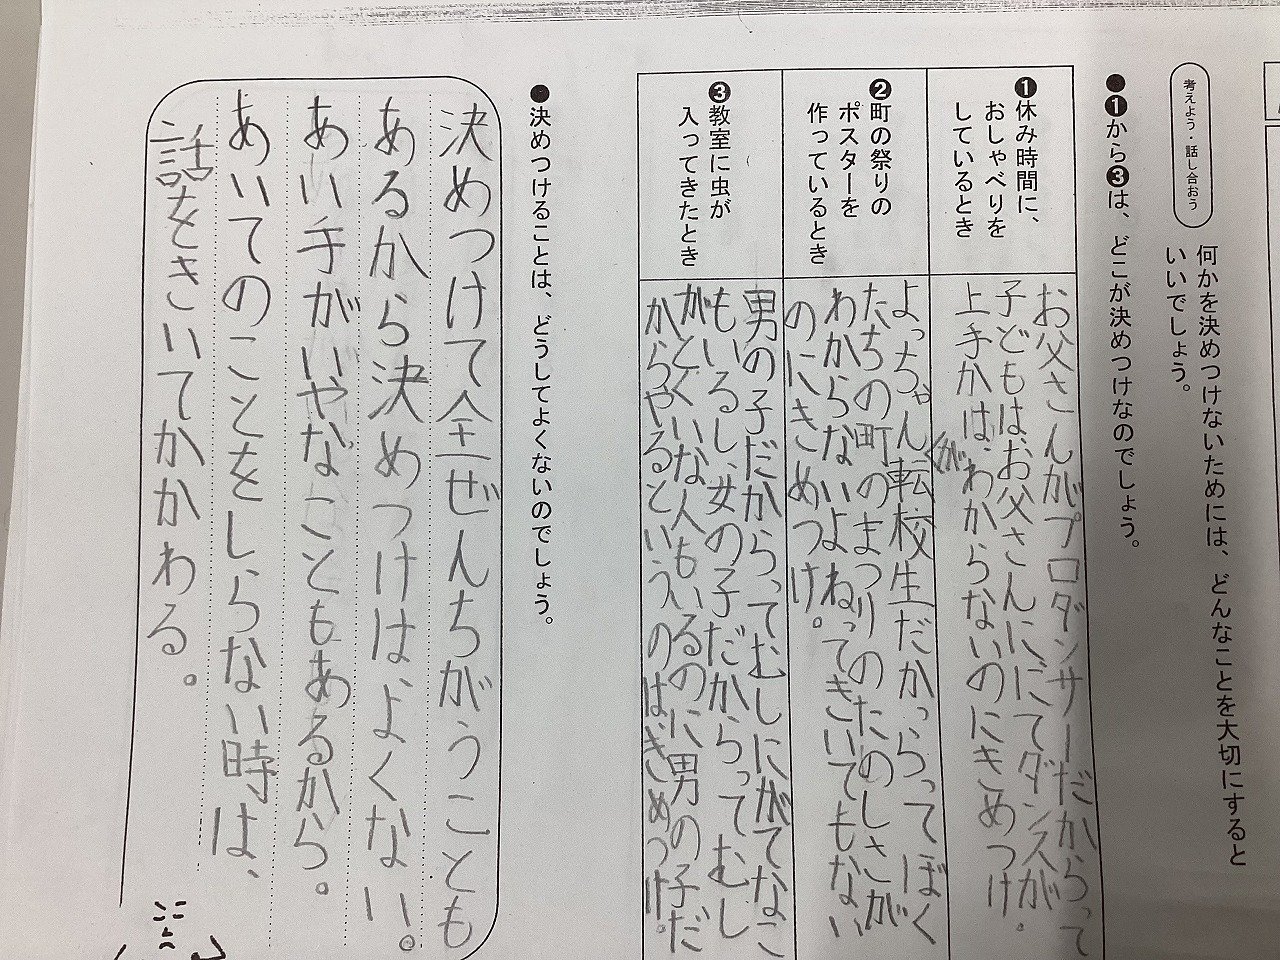 考えよう・話し合おう
何かを決めつけないためには、どんなことを大切にすると
いいでしょう。
●❶から❸は、どこが決めつけなのでしょう。
❶休み時間に、
おしゃべりを
しているとき
お父さんがプロダンサーだからって
子どもはお父さんににてダンスが
上手かはわからないのにきめつけ.
が
❷町の祭りの
ポスターを
作っているとき
よっちゃん転校生だからってぼく
たちの町のまつりのたのしさが
わからないよねってきいてもない
のにきめつけ。
❸教室に虫が
入ってきたとき
男の子だからってむしにがてなこ
もいるし、女の子だからってむし
がとくいな人もいるのに男の子だ
からやるというのは、きめつけ。
●決めつけることは、どうしてよくないのでしょう。
決めつけて全ぜんちがうことも
あるから決めつけは、よくない。
あい手がいやなこともあるから。
あいてのことをしらない時は、
話をきいてかかわる。